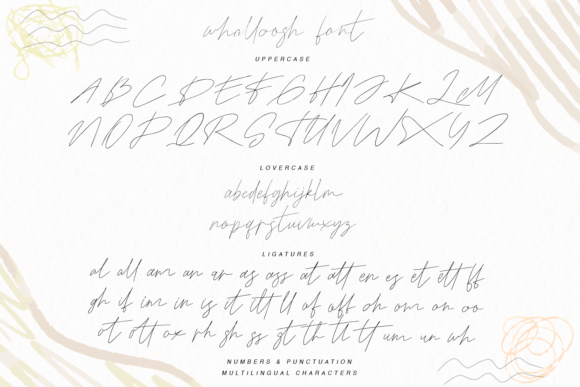 whalloosh font
UPPERCASE
A B C D E F G H I J K L M
N O P Q R S T U V W X Y Z
LOVERCASE
abcdefghijklm
nopqrstuvwxyz
LIGATURES
al all am an ar as ass at att en es et ett ff
gh if im in is it itt ll of off oh om on oo
ot ott ox rh sh ss st th tl tt um un wh
NUMBERS & PUNCTUATION
MULTILINGUAL CHARACTERS